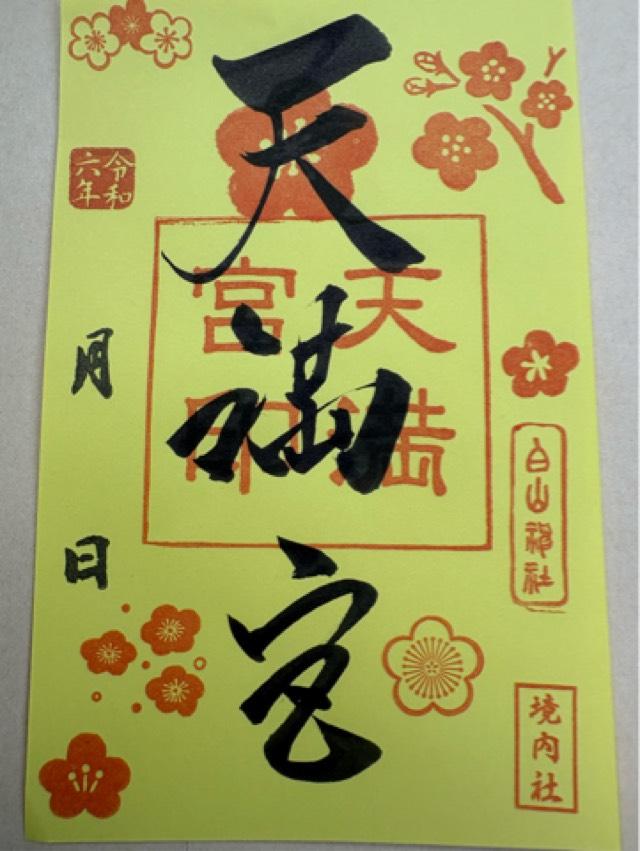 白山神社
境内社
天満宮
天満
宮印
令和
六年
月
日